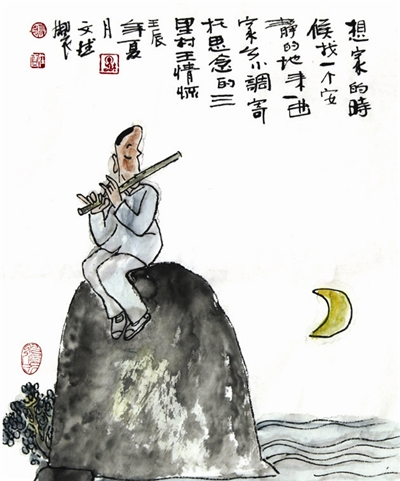 想家的時
候找一个安
靜的地来一曲
家乡小調寄
托思念的三
里村
壬辰
年夏
月